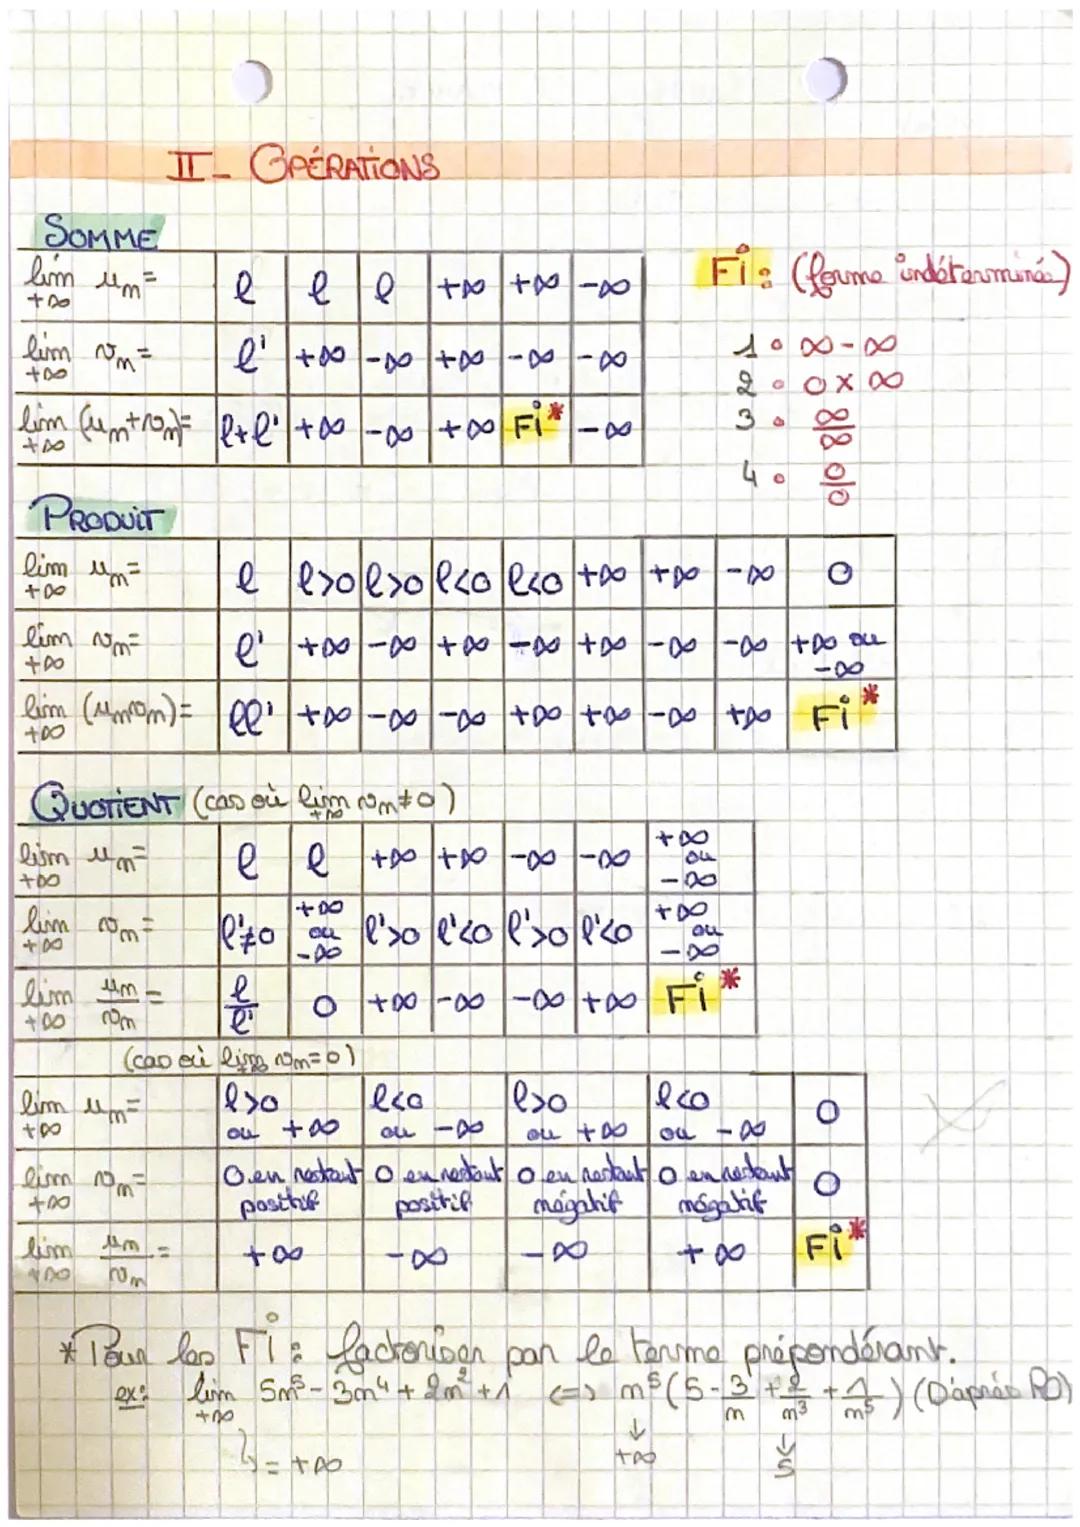 II - OPÉRATIONS
SOMME
lim uₙ= ℓ ℓ ℓ +∞ +∞ -∞
+∞
lim vₙ= ℓ' +∞ -∞ +∞ -∞ -∞
+∞
lim (uₙ+vₙ)= ℓ+ℓ' +∞ -∞ +∞ Fi* -∞
+∞
Fi : (forme indéterminée)
1° ∞-∞
2° 0×∞
3° ∞/∞
4° 0/0
PRODUIT
lim uₙ= ℓ ℓ>0 ℓ>0 ℓ<0 ℓ<0 +∞ +∞ -∞ 0
+∞
lim vₙ= ℓ' +∞ -∞ +∞ -∞ +∞ -∞ -∞ +∞ ou -∞
+∞
lim (uₙvₙ)= ℓℓ' +∞ -∞ -∞ +∞ +∞ -∞ +∞ Fi*
+∞
QUOTIENT (cas où lim vₙ≠0)
+∞
lim uₙ= ℓ ℓ +∞ +∞ -∞ -∞ +∞ ou -∞
+∞
lim vₙ= ℓ'≠0 +∞ ou -∞ ℓ'>0 ℓ'<0 ℓ'>0 ℓ'<0 +∞ ou -∞
+∞
lim uₙ/vₙ = ℓ/ℓ' 0 +∞ -∞ -∞ +∞ Fi*
+∞
(cas où lim vₙ=0)
+∞
lim uₙ= ℓ>0 ou +∞ ℓ<0 ou -∞ ℓ>0 ou +∞ ℓ<0 ou -∞ 0
+∞
lim vₙ= 0 en restant positif 0 en restant positif 0 en restant négatif 0 en restant négatif 0
+∞
lim uₙ/vₙ = +∞ -∞ -∞ +∞ Fi*
+∞
* Pour les Fi : factoriser par le terme prépondérant.
ex: lim 5n⁵ - 3n⁴ + 2n² + 1 <=> n⁵(5 - 3/n + 2/n³ + 1/n⁵) (D'après RO)
+∞
↓ ↓
↳ = +∞ +∞ 5